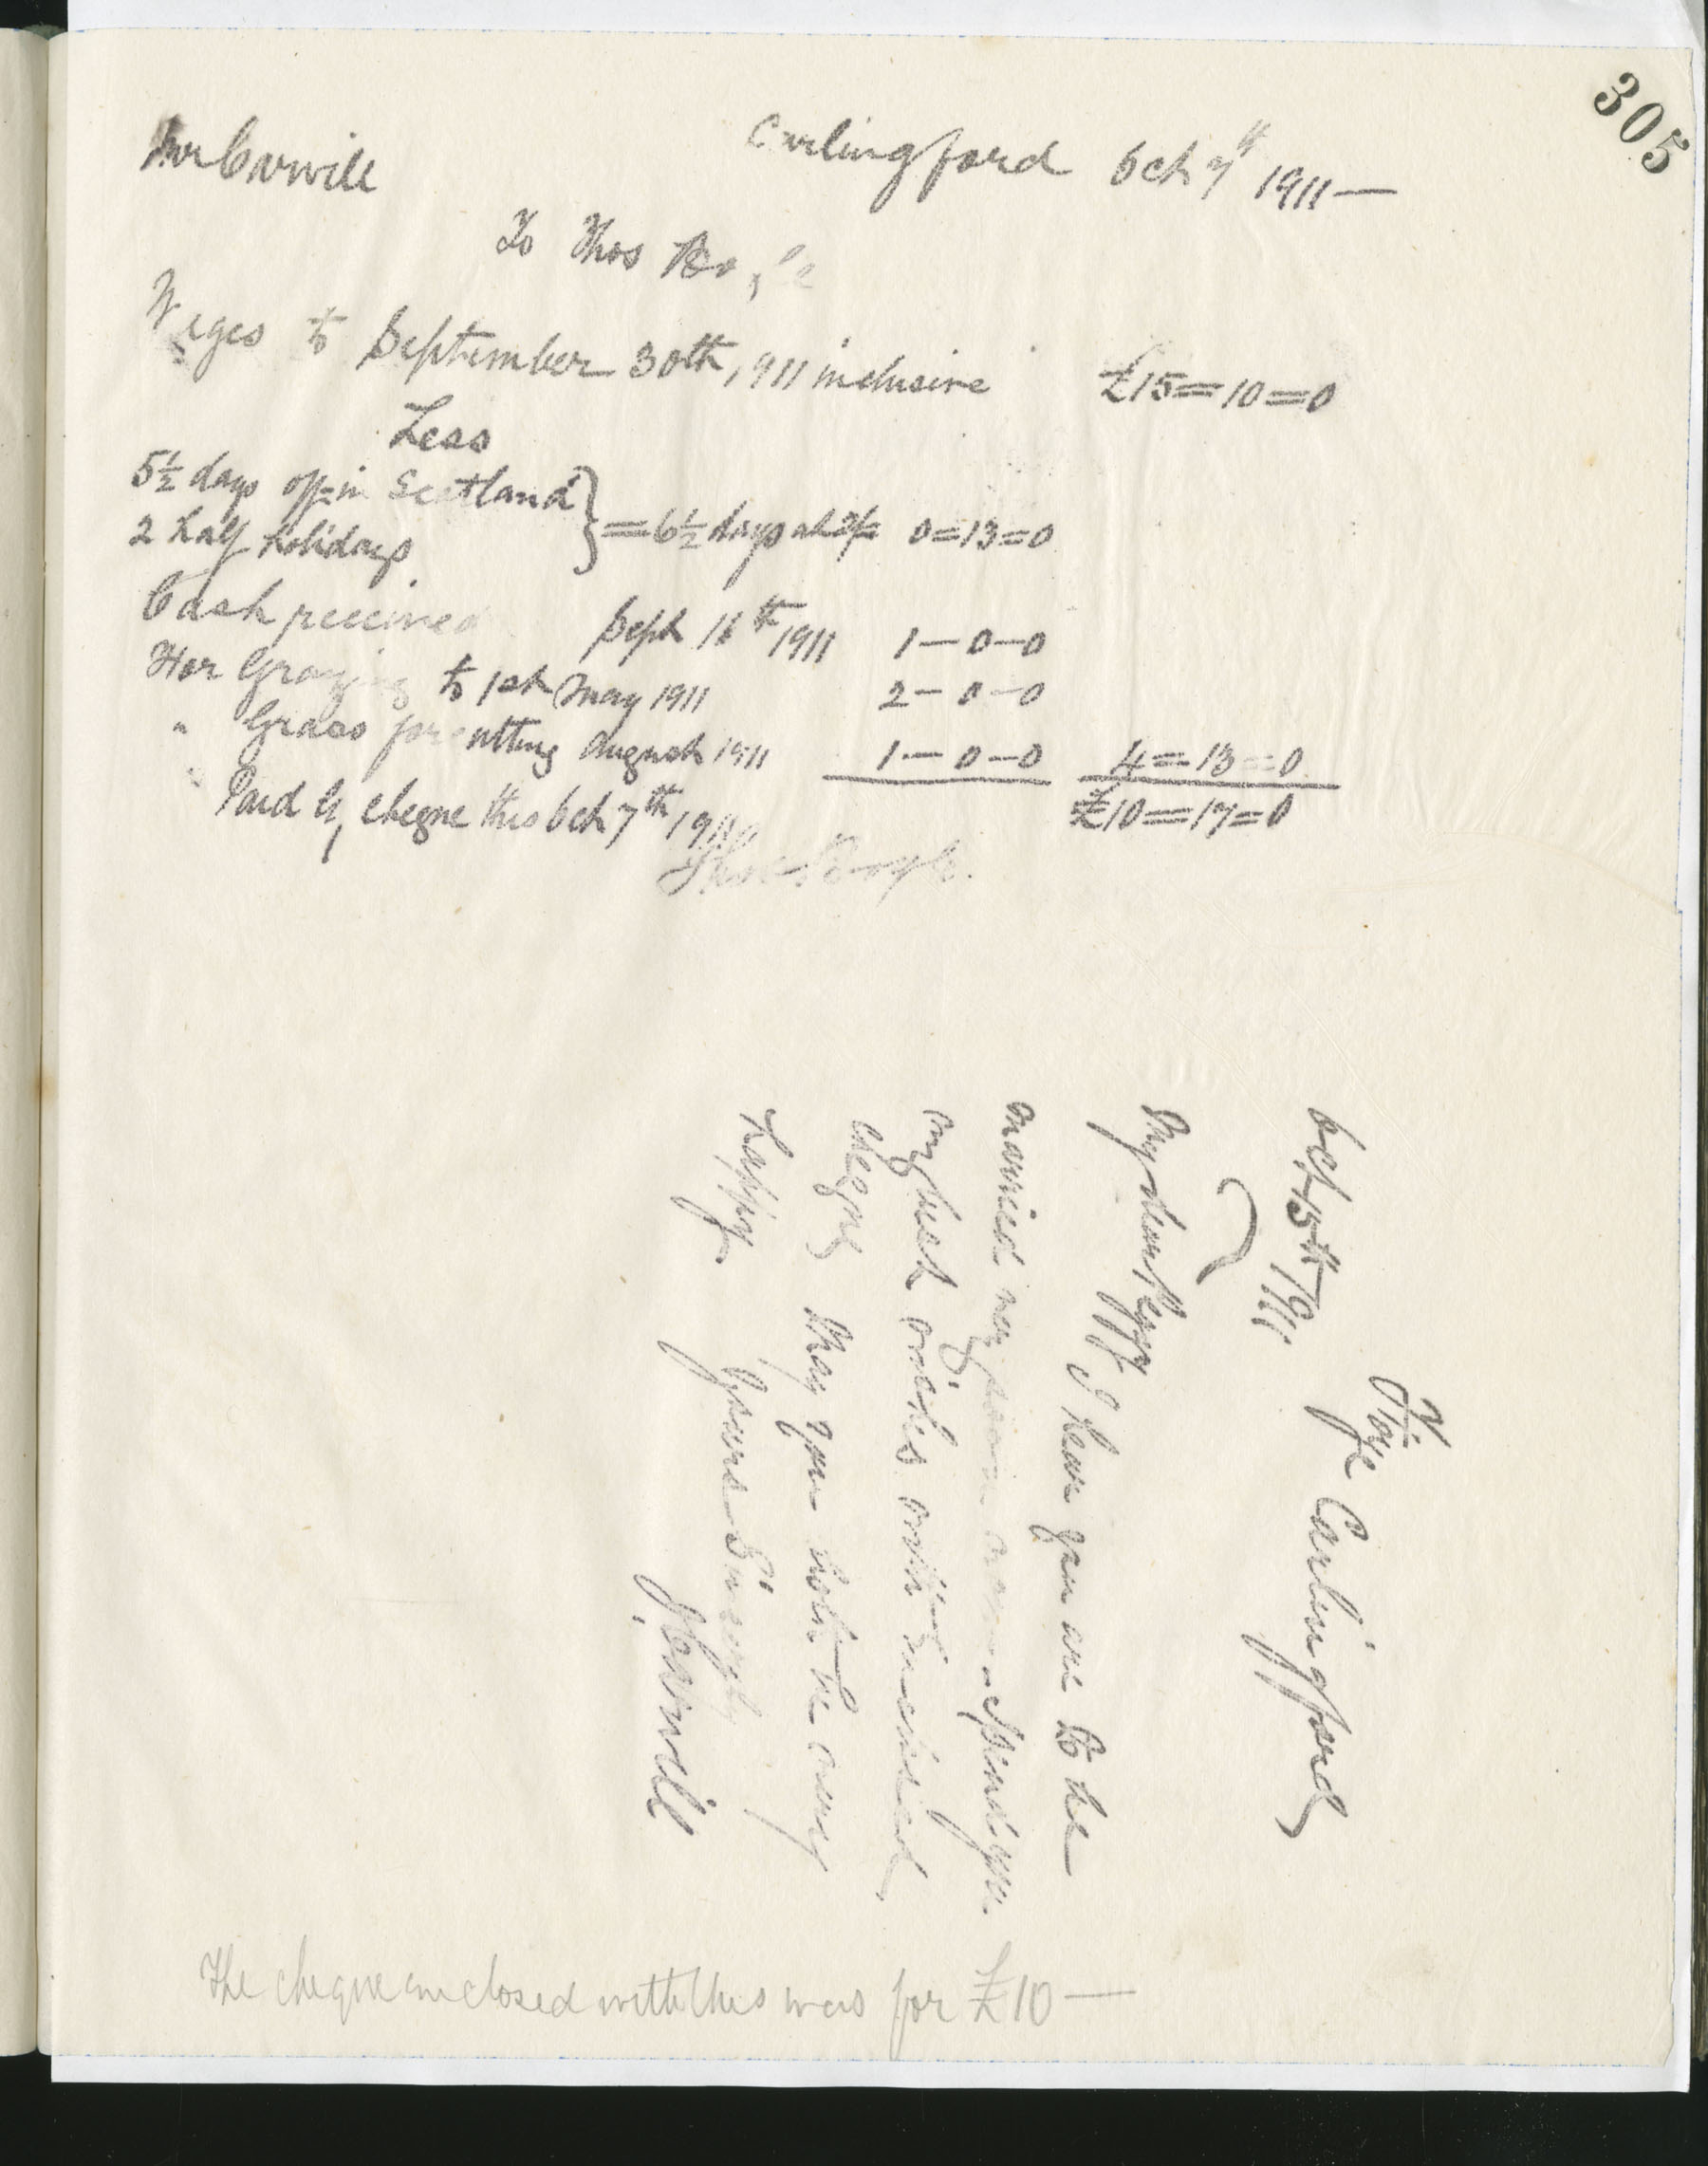 305
Mr Carvill
Carlingford Oct 7th 1911—
To Thos Boyle
Wages to September 30th, 1911 inclusive £15=10=0
Less
5½ days off in Scotland
2 half holidays } = 6½ days at 2/= 0=13=0
Cash received Sept 16th 1911 1—0—0
For Grazing to 1st May 1911 2—0—0
" Grass for cutting August 1911 1—0—0 4=13=0
Paid by cheque this Oct 7th 1911 £10=17=0
Thos Boyle.
Carlingford
Oct 15th 1911
My dear Peggy
I hear you are to be
married very soon and I send you
my best wishes with enclosed
cheque May you both be very
happy.
Yours Sincerely
Carvill
The cheque enclosed with this was for £10—